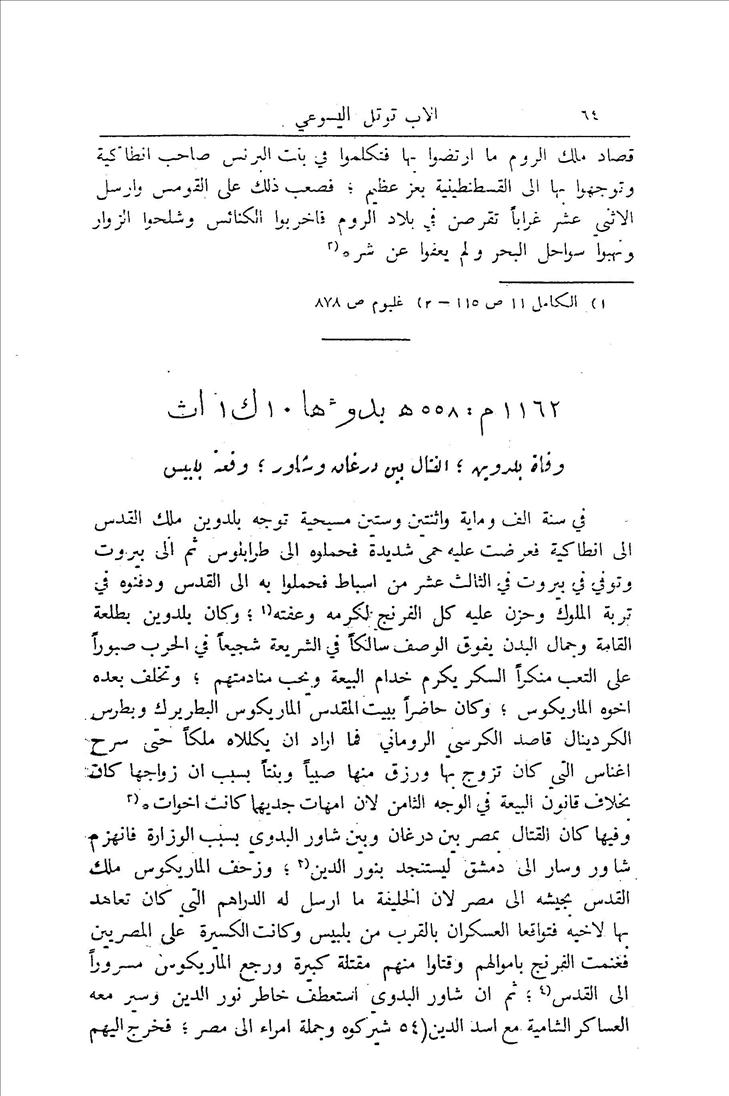 ٦٤ الاب توتل اليسوعي
قصاد ملك الروم ما ارتضوا بها فتكلموا في بنت البرنس صاحب انطاكية
وتوجهوا بها الى القسطنطينية بعز عظيم ؛ فصعب ذلك على القومس وارسل
الاثني عشر غراباً تقرصن في بلاد الروم فاخربوا الكنائس وشلحوا الزوار
ونهبوا سواحل البحر ولم يعفوا عن شر ٢)
١) الكامل ١١ ص ١١٥ – ٢) غليوم ص ٨٧٨
١١٦٢ م : ٥٥٨ ه بدوها ١٠ ك ١ اث
وفاة بلدوين ؛ القتال بين درغان وشاور ؛ وقعة بلبيس
في سنة الف وماية واثنتين وستين مسيحية توجه بلدوين ملك القدس
الى انطاكية فعرضت عليه حمى شديدة فحملوه الى طرابلوس ثم الى بيروت
وتوفي في بيروت في الثالث عشر من اسباط فحملوا به الى القدس ودفنوه في
تربة الملوك وحزن عليه كل الفرنج لكرمه وعفته ١) ؛ وكان بلدوين بطلعة
القامة وجمال البدن يفوق الوصف سالكاً في الشريعة شجيعاً في الحرب صبوراً
على التعب منكراً السكر يكرم خدام البيعة ويحب منادمتهم ؛ وتخلف بعده
اخوه الماريكوس ؛ وكان حاضراً ببيت المقدس الماريكوس البطريرك وبطرس
الكردينال قاصد الكرسي الروماني فما اراد ان يكللاه ملكاً حتى سرح
اغناس التي كان تزوج بها ورزق منها صبياً وبنتاً بسبب ان زواجها كان
بخلاف قانون البيعة في الوجه الثامن لان امهات جديهما كانت اخوات ٢)
وفيها كان القتال بمصر بين درغان وبين شاور البدوي بسبب الوزارة فانهزم
شاور وسار الى دمشق ليستنجد بنور الدين ٣) ؛ وزحف الماريكوس ملك
القدس بجيشه الى مصر لان الخليفة ما ارسل له الدراهم التي كان تعاهد
بها لاخيه فتواقعا العسكران بالقرب من بلبيس وكانت الكسرة على المصريين
فغنمت الفرنج باموالهم وقتلوا منهم مقتلة كبيرة ورجع الماريكوس مسروراً
الى القدس ٤) ؛ ثم ان شاور البدوي استعطف خاطر نور الدين وسير معه
العساكر الشامية مع اسد الدين (٥٤ شيركوه وجملة امراء الى مصر ؛ فخرج اليهم